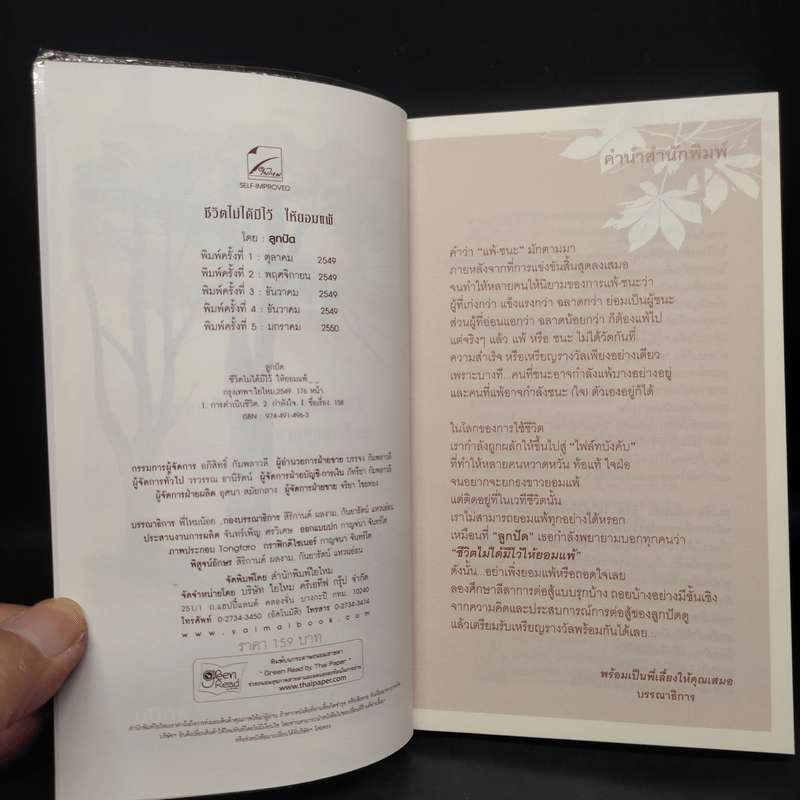 ใยไหม
SELF-IMPROVED
ชีวิตไม่ได้มีไว้ ให้ยอมแพ้
โดย : ลูกปัด
พิมพ์ครั้งที่ 1 : ตุลาคม 2549
พิมพ์ครั้งที่ 2 : พฤศจิกายน 2549
พิมพ์ครั้งที่ 3 : ธันวาคม 2549
พิมพ์ครั้งที่ 4 : ธันวาคม 2549
พิมพ์ครั้งที่ 5 : มกราคม 2550
ลูกปัด
ชีวิตไม่ได้มีไว้ ให้ยอมแพ้.
กรุงเทพฯ:ใยไหม,2549. 176 หน้า.
1. การดำเนินชีวิต. 2. กำลังใจ. I. ชื่อเรื่อง. 158
ISBN : 974-491-496-3
กรรมการผู้จัดการ อภิสิทธิ์ กัมพลาวลี ผู้อำนวยการฝ่ายขาย บรรจง กัมพลาวลี
ผู้จัดการทั่วไป วรวรรณ ธานีรัตน์ ผู้จัดการฝ่ายบัญชี-การเงิน ภัทริยา กัมพลาวลี
ผู้จัดการฝ่ายผลิต อุศนา สมัยกลาง ผู้จัดการฝ่ายขาย จริยา ไชยทอง
บรรณาธิการ พี่ไหมน้อย กองบรรณาธิการ สิริกานต์ ผลงาม, กันยารัตน์ แหวนอ่อน
ประสานงานการผลิต จันทร์เพ็ญ ศรวิเศษ ออกแบบปก กาญจนา จันทร์โต
ภาพประกอบ Tongtoro กราฟิกดีไซเนอร์ กาญจนา จันทร์โต
พิสูจน์อักษร สิริกานต์ ผลงาม, กันยารัตน์ แหวนอ่อน
จัดพิมพ์โดย สำนักพิมพ์ใยไหม
จัดจำหน่ายโดย บริษัท ใยไหม ครีเอทีฟ กรุ๊ป จำกัด
251/1 ถ.แฮปปี้แลนด์ คลองจั่น บางกะปิ กทม. 10240
โทรศัพท์ 0-2734-3450 (อัตโนมัติ) โทรสาร 0-2734-3414
www.yaimaibook.com
ราคา 159 บาท
green Read
พิมพ์บนกระดาษถนอมสายตา
" Green Read by Thai Paper "
www.thaipaper.com
คำนำสำนักพิมพ์
คำว่า "แพ้-ชนะ" มักตามมา
ภายหลังจากที่การแข่งขันสิ้นสุดลงเสมอ
จนทำให้หลายคนให้นิยามของการแพ้-ชนะว่า
ผู้ที่เก่งกว่า แข็งแรงกว่า ฉลาดกว่า ย่อมเป็นผู้ชนะ
ส่วนผู้ที่อ่อนแอกว่า ฉลาดน้อยกว่า ก็ต้องแพ้ไป
แต่จริงๆ แล้ว แพ้ หรือ ชนะ ไม่ได้วัดกันที่
ความสำเร็จ หรือเหรียญรางวัลเพียงอย่างเดียว
เพราะบางที...คนที่ชนะอาจกำลังแพ้บางอย่างอยู่
และคนที่แพ้อาจกำลังชนะ (ใจ) ตัวเองอยู่ก็ได้
ในโลกของการใช้ชีวิต
เรากำลังถูกผลักให้ขึ้นไปสู่ "ไฟล์ทบังคับ"
ที่ทำให้หลายคนหวาดหวั่น ท้อแท้ ใจฝ่อ
จนอยากจะยกธงขาวยอมแพ้
แต่ติดอยู่ที่ในเวทีชีวิตนั้น
เราไม่สามารถยอมแพ้ทุกอย่างได้หรอก
เหมือนที่ "ลูกปัด" เธอกำลังพยายามบอกทุกคนว่า
"ชีวิตไม่ได้มีไว้ให้ยอมแพ้"
ดังนั้น...อย่าเพิ่งยอมแพ้หรือถอดใจเลย
ลองศึกษาลีลาการต่อสู้แบบรุกบ้าง ถอยบ้างอย่างมีชั้นเชิง
จากความคิดและประสบการณ์การต่อสู้ของลูกปัดดู
แล้วเตรียมรับเหรียญรางวัลพร้อมกันได้เลย...
พร้อมเป็นพี่เลี้ยงให้คุณเสมอ
บรรณาธิการ